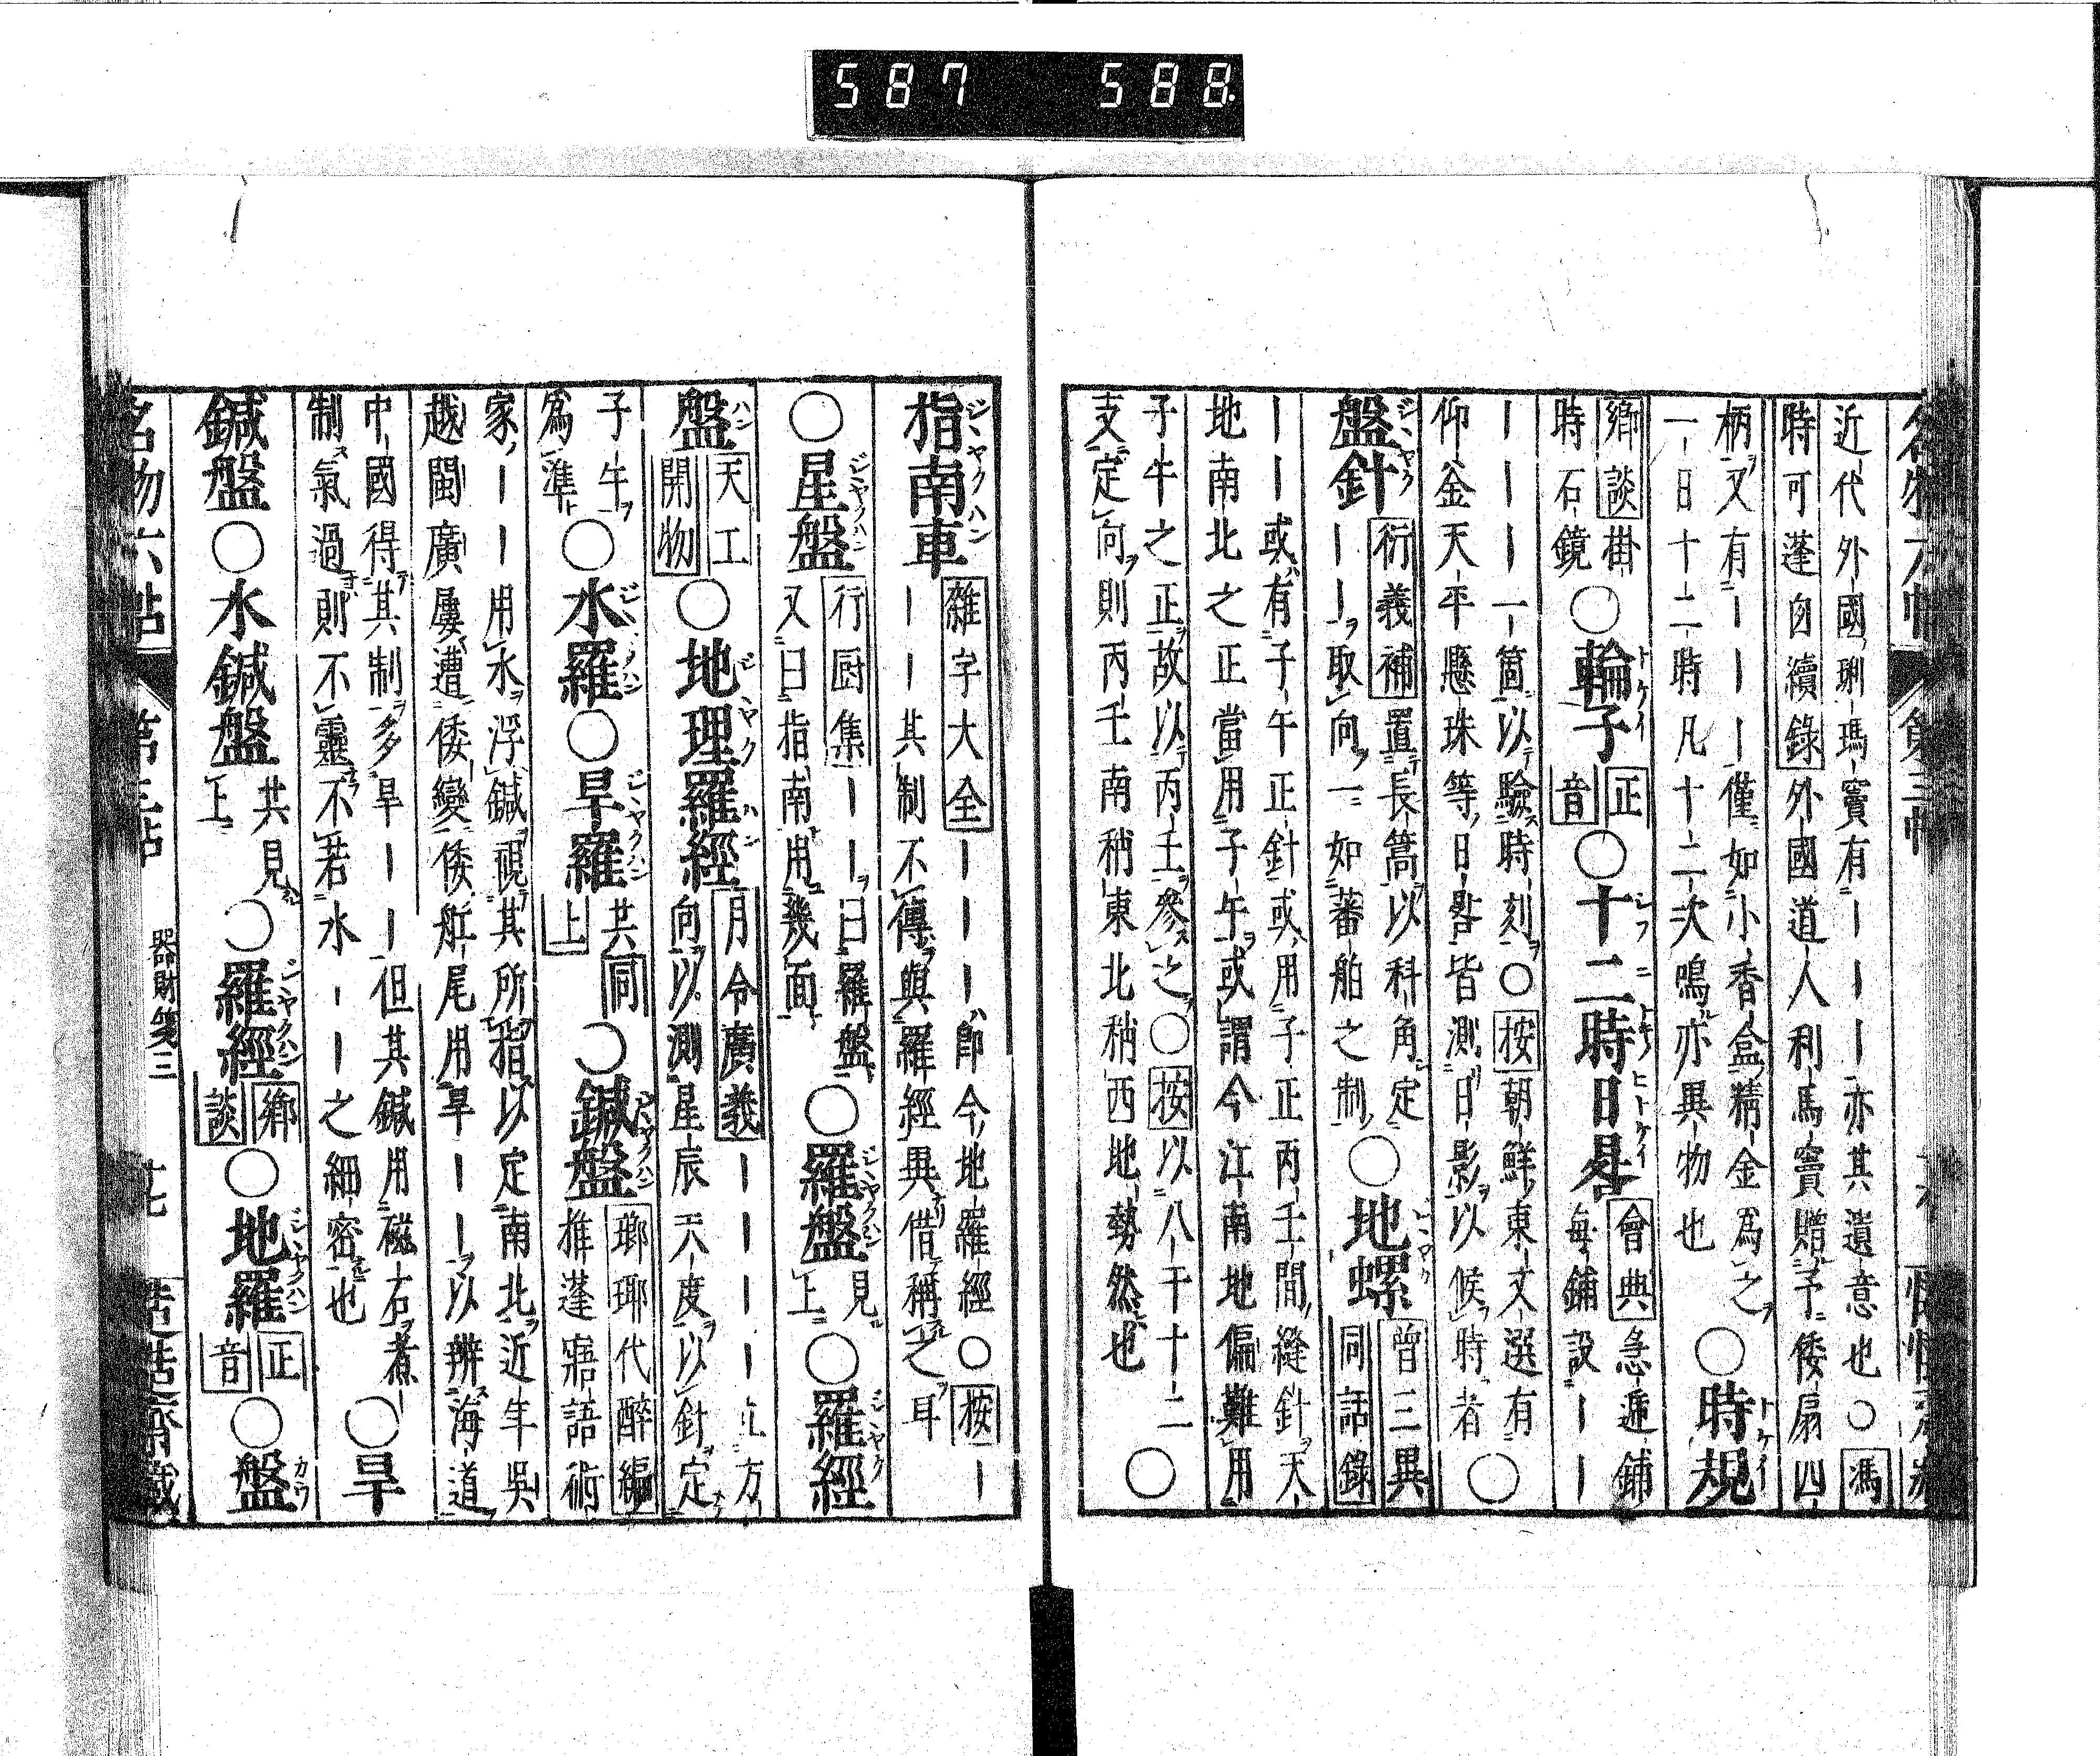 587 588
近代外國琍瑪竇有｜｜｜亦其遺意也○馮
時可蓬囪續錄外國道人利馬竇贈予倭扇四
柄又有｜｜｜｜僅如小香盒精金為之
一日十二時凡十二次鳴亦異物也
○時規トケイ
鄉談掛
時石鏡
○輪子トケイ
正
音
○十二時日晷
會典急遞鋪
每鋪設｜｜
｜｜｜一箇以驗時刻○按朝鮮東文選有
仰釜天平懸珠等日晷皆測日影以候時者
○
盤針
衍義補置長篙以科角定
｜｜取向一如蕃舶之制
○地螺
曾三異
同話錄
｜｜或有子午正針或用子正丙壬間縫針天
地南北之正當用子午或謂今江南地偏難用
子午之正故以丙壬參之○按以八干十二
支定向則丙壬南稍東北稍西地勢然也
○
指南車ジシヤクハン
雜字大全｜｜｜即今地羅經○按｜
｜｜其制不傳與羅經異借稱之耳
○星盤ジシヤクハン
行厨集｜｜曰羅盤
又曰指南用幾面
○羅盤ジシヤクハン
見
上
○羅經
盤ハン
天工
開物
○地理羅經
月令廣義｜｜｜｜立方
向以測星辰天度以針定
子午
為準
○水羅○旱羅
共同
上
○鍼盤
瑯琊代醉編
推蓬寤語術
家｜｜用水浮鍼視其所指以定南北近年吳
越閩廣屢遭倭變倭舡尾用旱｜｜以辨海道
中國得其制多旱｜｜但其鍼用磁石煮
制氣過則不靈不若水｜｜之細密也
○旱
鍼盤○水鍼盤
共見
上
○羅經ジシヤクハン
鄉
談
○地羅ジシヤクハン
正
音
○盤
名物六帖 第三帖 器財箋三